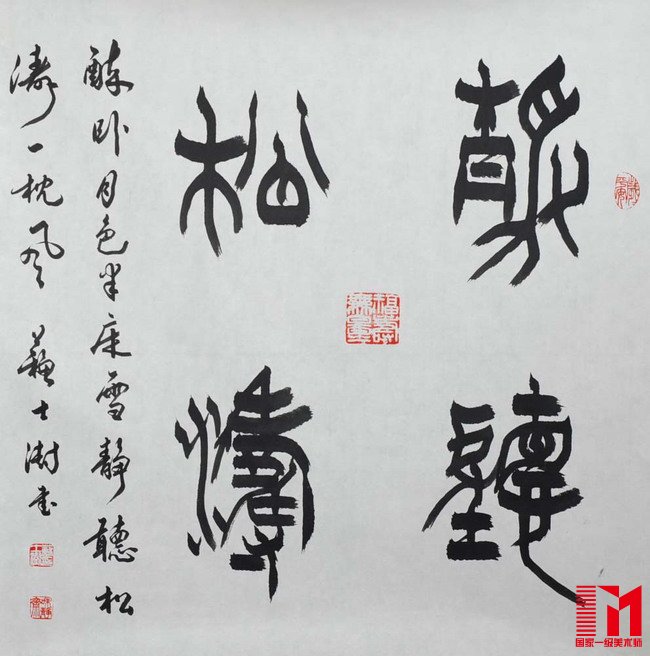 靜聽
松濤
醉卧月色半床雪靜聽松
濤一枕風 蘇士澍書
福壽無量
国家一级美术师